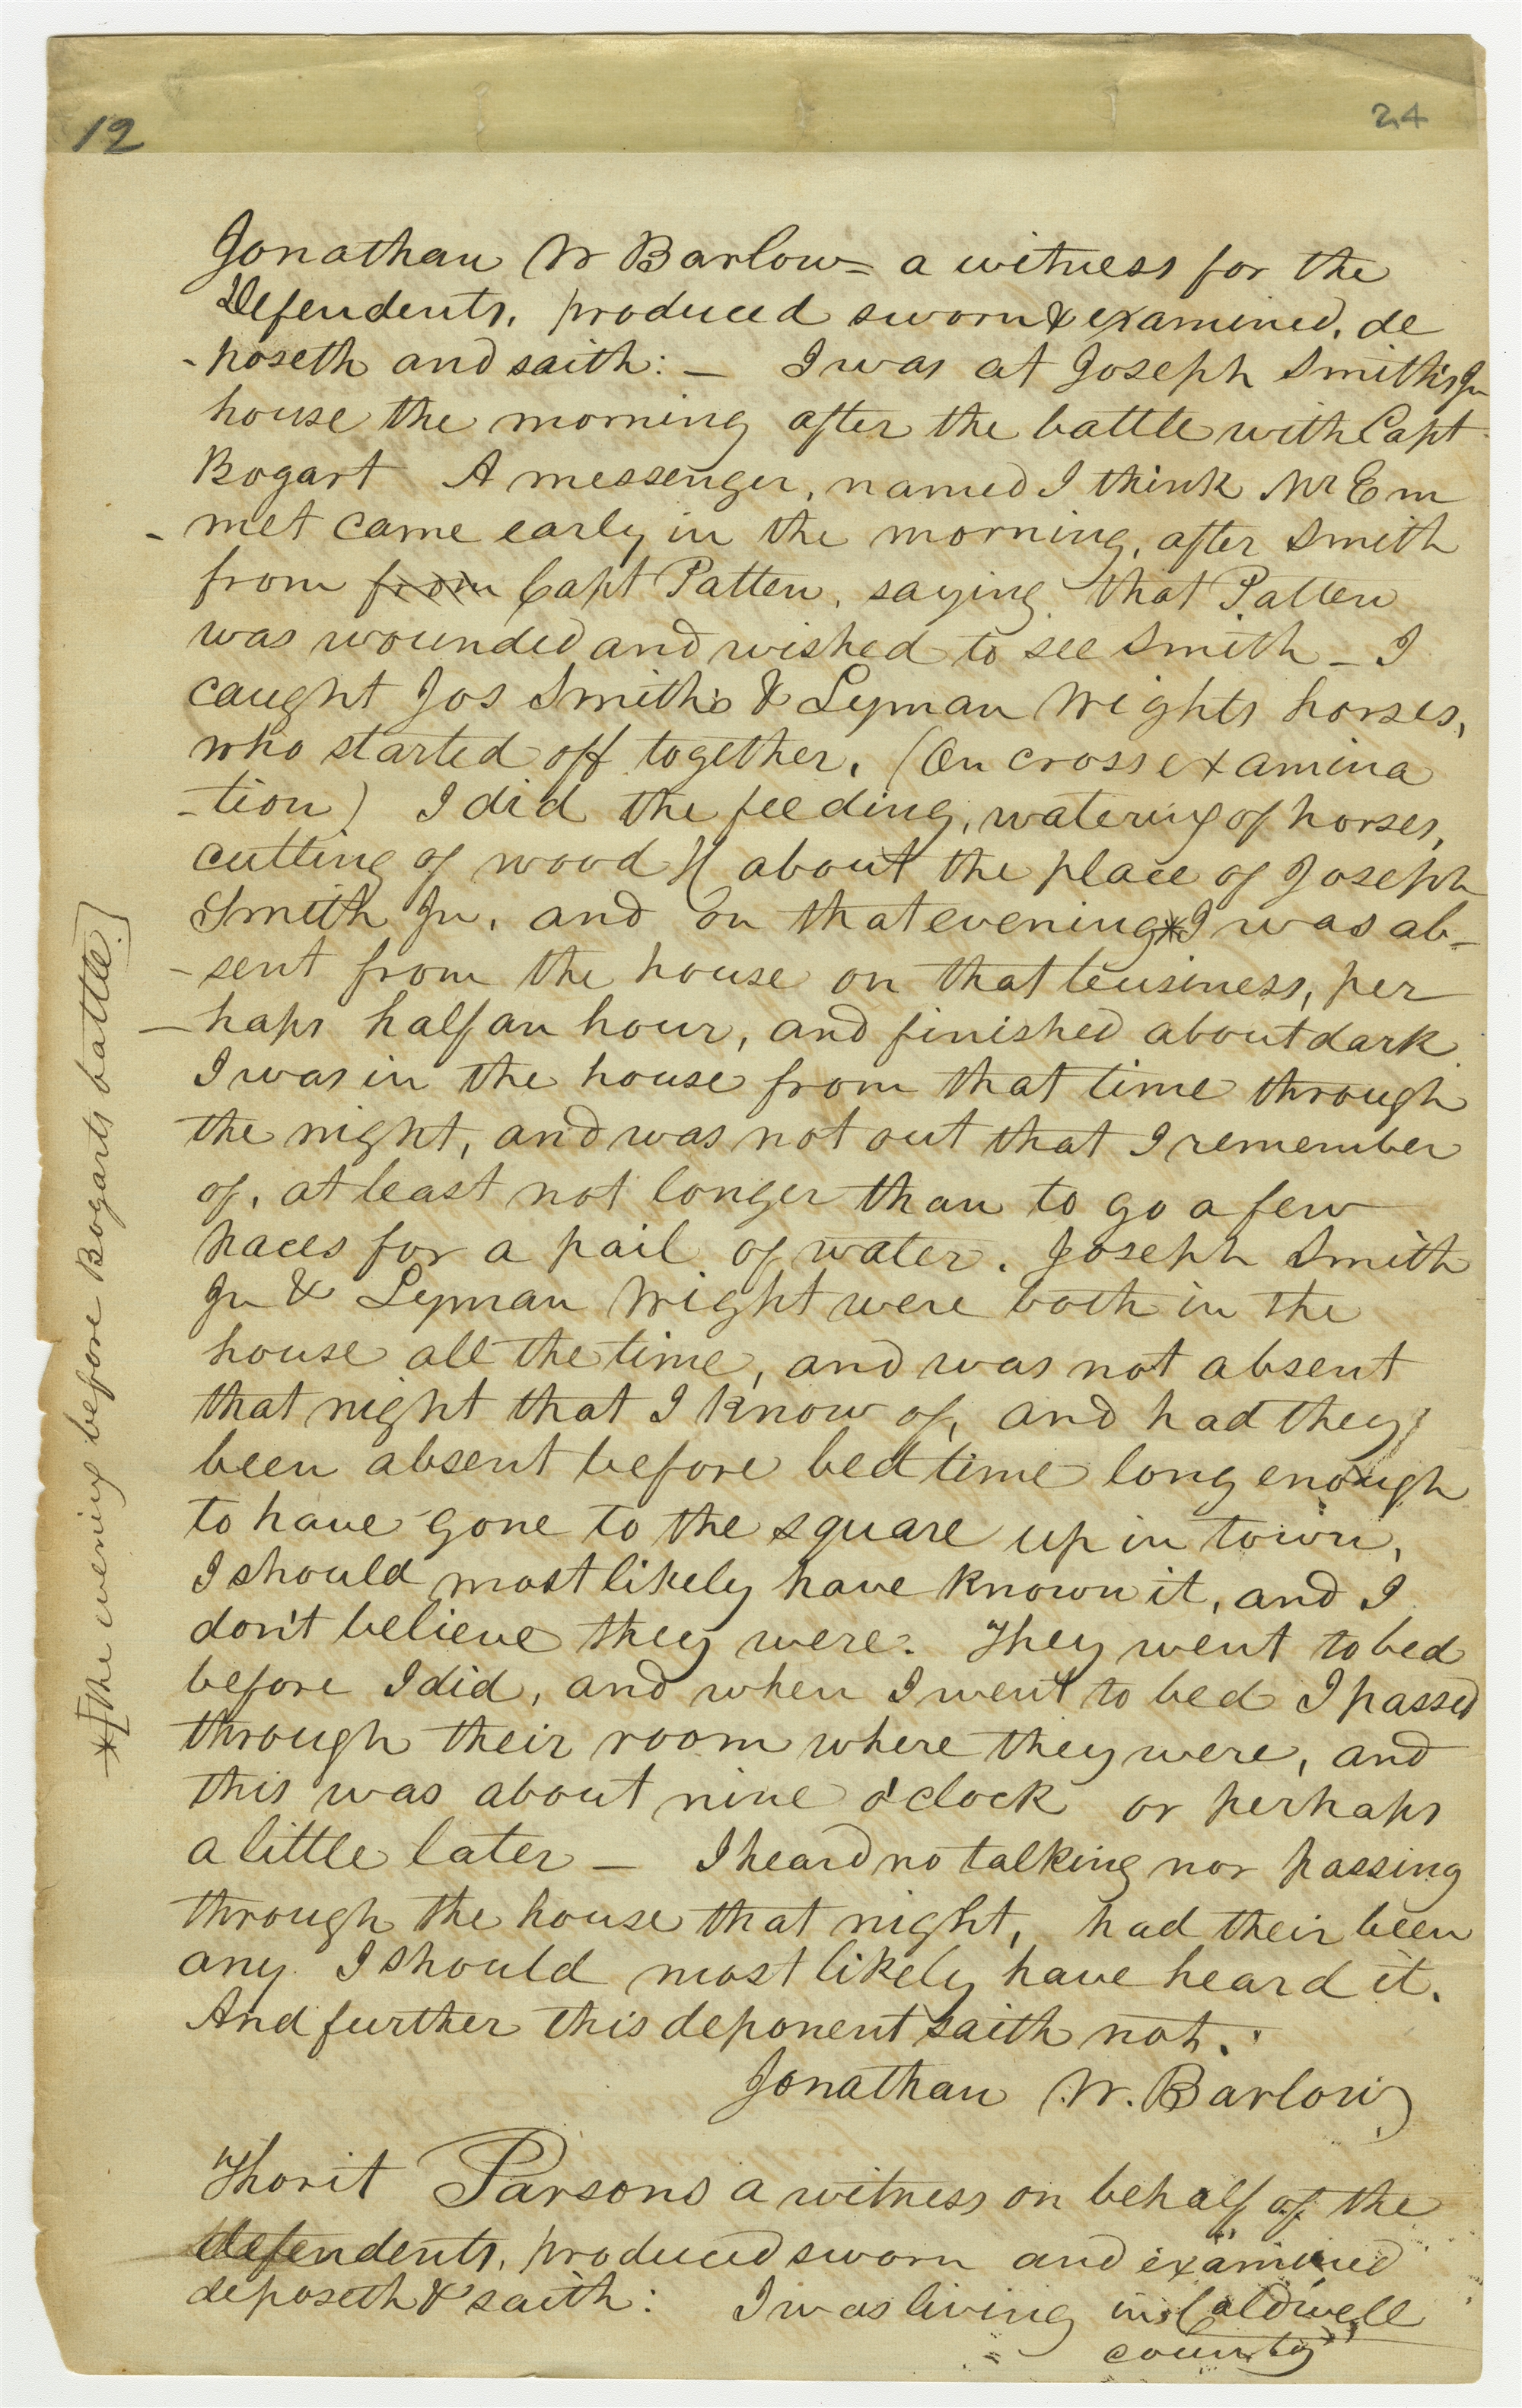 12
24
Jonathan W Barlow= a witness for the
Defendents, produced sworn & examined, de
-poseth and saith: — I was at Joseph Smith's Jr
house the morning after the battle with Capt
Bogart A messenger, named I think Mr Em
-met came early in the morning, after Smith
from from Capt Patten, saying that Patten
was wounded and wished to see Smith — I
caught Jos Smiths & Lyman Wights horses,
who started off together, (On cross examina
-tion) I did the feeding, watering of horses,
cutting of wood &c about the place of Joseph
Smith Jr, and on that evening* I was ab-
-sent from the house on that buisiness, per
-haps half an hour, and finished about dark
I was in the house from that time through
the night, and was not out that I remember
of, at least not longer than to go a few
paces for a pail of water. Joseph Smith
Jr & Lyman Wright were both in the
house all the time, and was not absent
that night that I know of, and had they
been absent before bed time long enough
to have gone to the square up in town,
I should most likely have known it, and I
don't believe they were. They went to bed
before I did, and when I went to bed I passed
through their room where they were, and
this was about nine o'clock or perhaps
a little later — I heard no talking nor passing
through the house that night, had their been
any I should most likely have heard it.
And further this deponent saith not.
Jonathan W. Barlow
*[The evening before Bogarts battle.]
Thorit Parsons a witness on behalf of the
defendents, produced sworn and examined
deposeth & saith: I was living in Caldwell
county